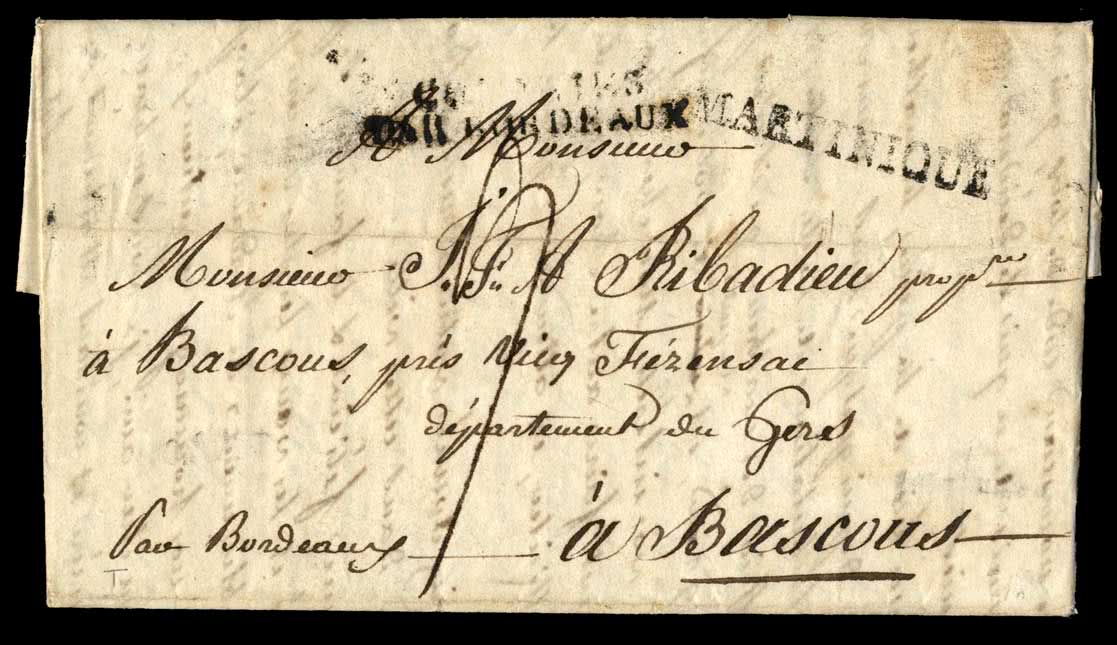 COLONIES
PAR BORDEAUX
MARTINIQUE
A Monsieur
Monsieur J. Fs. A Ribadieu propre
à Bascous, près Vicq Fézensac
département du Gers
à Bascous
Par Bordeaux